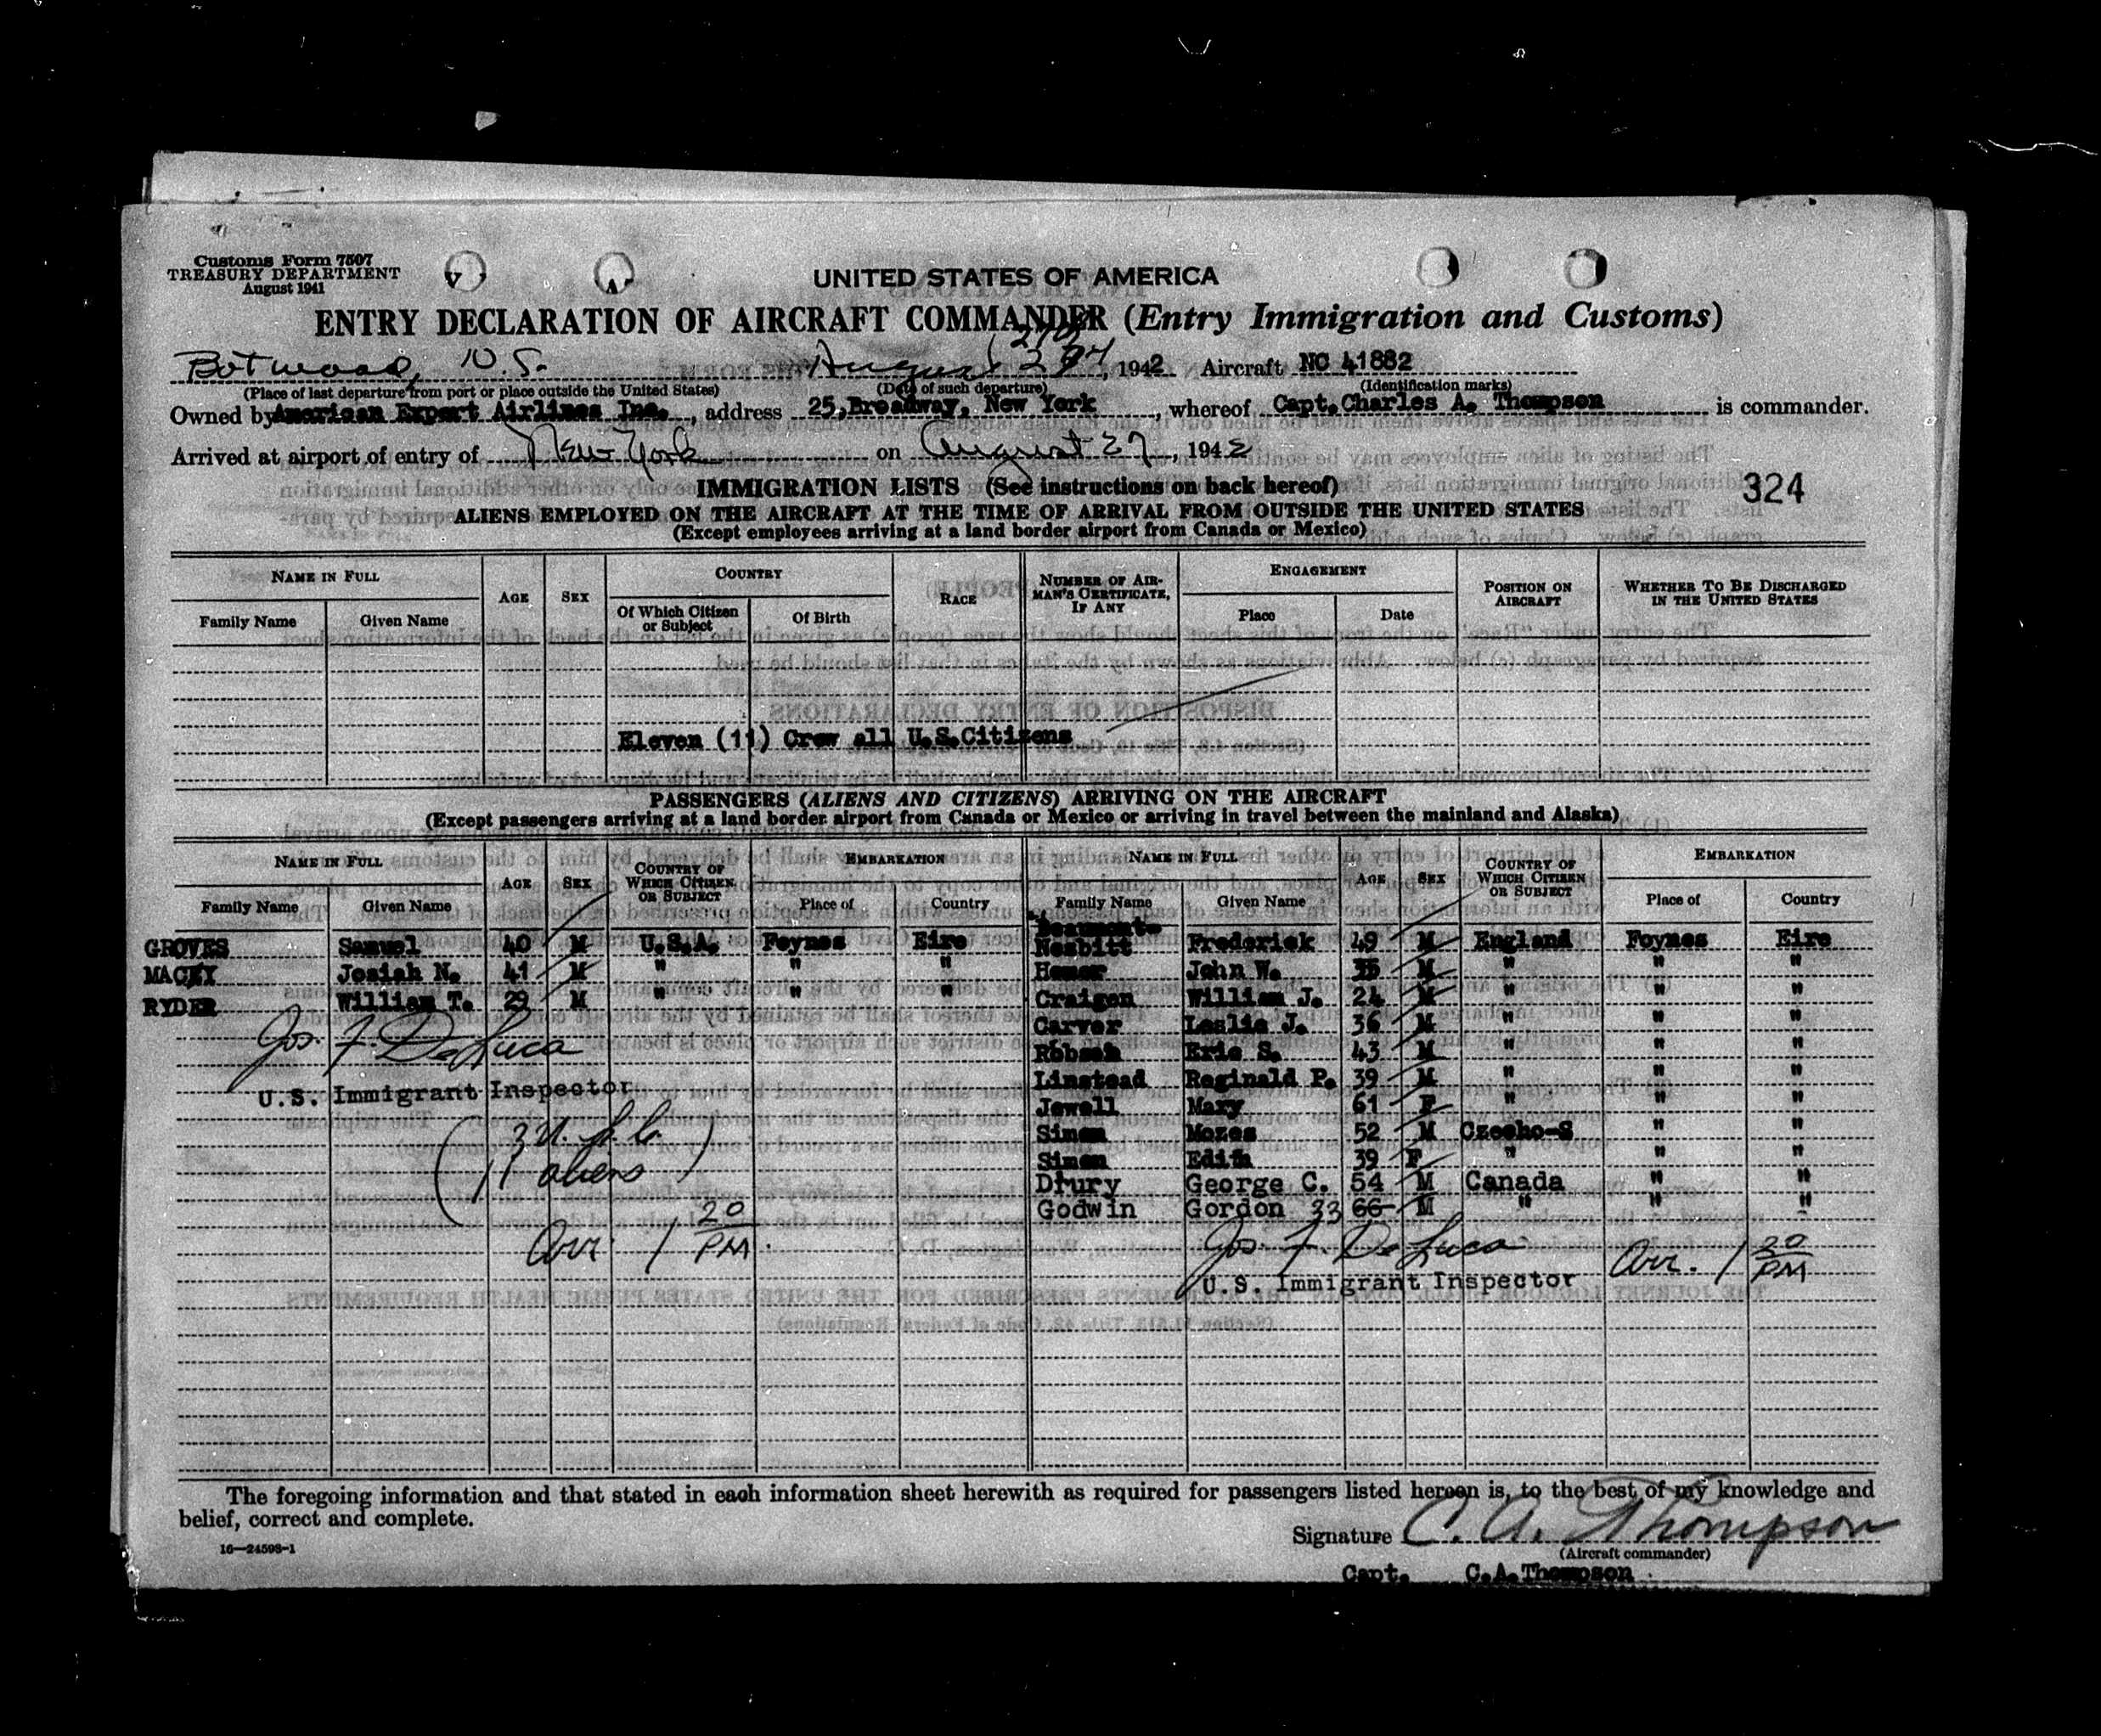 Customs Form 7507
TREASURY DEPARTMENT
August 1941
UNITED STATES OF AMERICA
ENTRY DECLARATION OF AIRCRAFT COMMANDER (Entry Immigration and Customs)
Botwood, August 27, 1942 Aircraft NC 41882
(Place of last departure from port or place outside the United States) (Date of such departure) (Identification marks)
Owned by American Export Airlines Inc., address 25, Broadway, New York, whereof Capt. Charles A. Thompson is commander.
Arrived at airport of entry of New York on August 27, 1942
IMMIGRATION LISTS (See instructions on back hereof) 324
ALIENS EMPLOYED ON THE AIRCRAFT AT THE TIME OF ARRIVAL FROM OUTSIDE THE UNITED STATES
(Except employees arriving at a land border airport from Canada or Mexico)
NAME IN FULL AGE SEX COUNTRY RACE NUMBER OF AIRMAN'S CERTIFICATE, IF ANY ENGAGEMENT POSITION ON AIRCRAFT WHETHER TO BE DISCHARGED IN THE UNITED STATES
Family Name Given Name Of Which Citizen or Subject Of Birth Place Date
Eleven (11) Crew all U.S.Citizens
PASSENGERS (ALIENS AND CITIZENS) ARRIVING ON THE AIRCRAFT
(Except passengers arriving at a land border airport from Canada or Mexico or arriving in travel between the mainland and Alaska)
NAME IN FULL AGE SEX COUNTRY OF WHICH CITIZEN OR SUBJECT EMBARKATION NAME IN FULL AGE SEX COUNTRY OF WHICH CITIZEN OR SUBJECT EMBARKATION
Family Name Given Name Place of Country Family Name Given Name Place of Country
Beaumont-
GROVES Samuel 40 M U.S.A. Foynes Eire Nesbitt Frederick 49 M England Foynes Eire
MACKY Josiah N. 41 M " " " John W. 35 M " " "
RYDER William T. 29 M " " " Craigen William J. 24 M " " "
Carver Leslie J. 36 M " " "
Jos. F. DeLuca Robson Eric S. 43 M " " "
Linstead Reginald P. 39 M " " "
U.S. Immigrant Inspector Jewell Mary 61 F " " "
(3 U.S.C. Simon Mozes 52 M Czecho-S " "
11 aliens) Simon Edith 39 F " " "
Drury George C. 54 M Canada " "
Godwin Gordon 33 66 M " " "
Arr. 1 20 PM. Jos. F. DeLuca Arr. 1 20 PM
U.S. Immigrant Inspector
The foregoing information and that stated in each information sheet herewith as required for passengers listed hereon is, to the best of my knowledge and
belief, correct and complete.
Signature C. A. Thompson
16—24598-1 (Aircraft commander)
Capt. C.A.Thompson